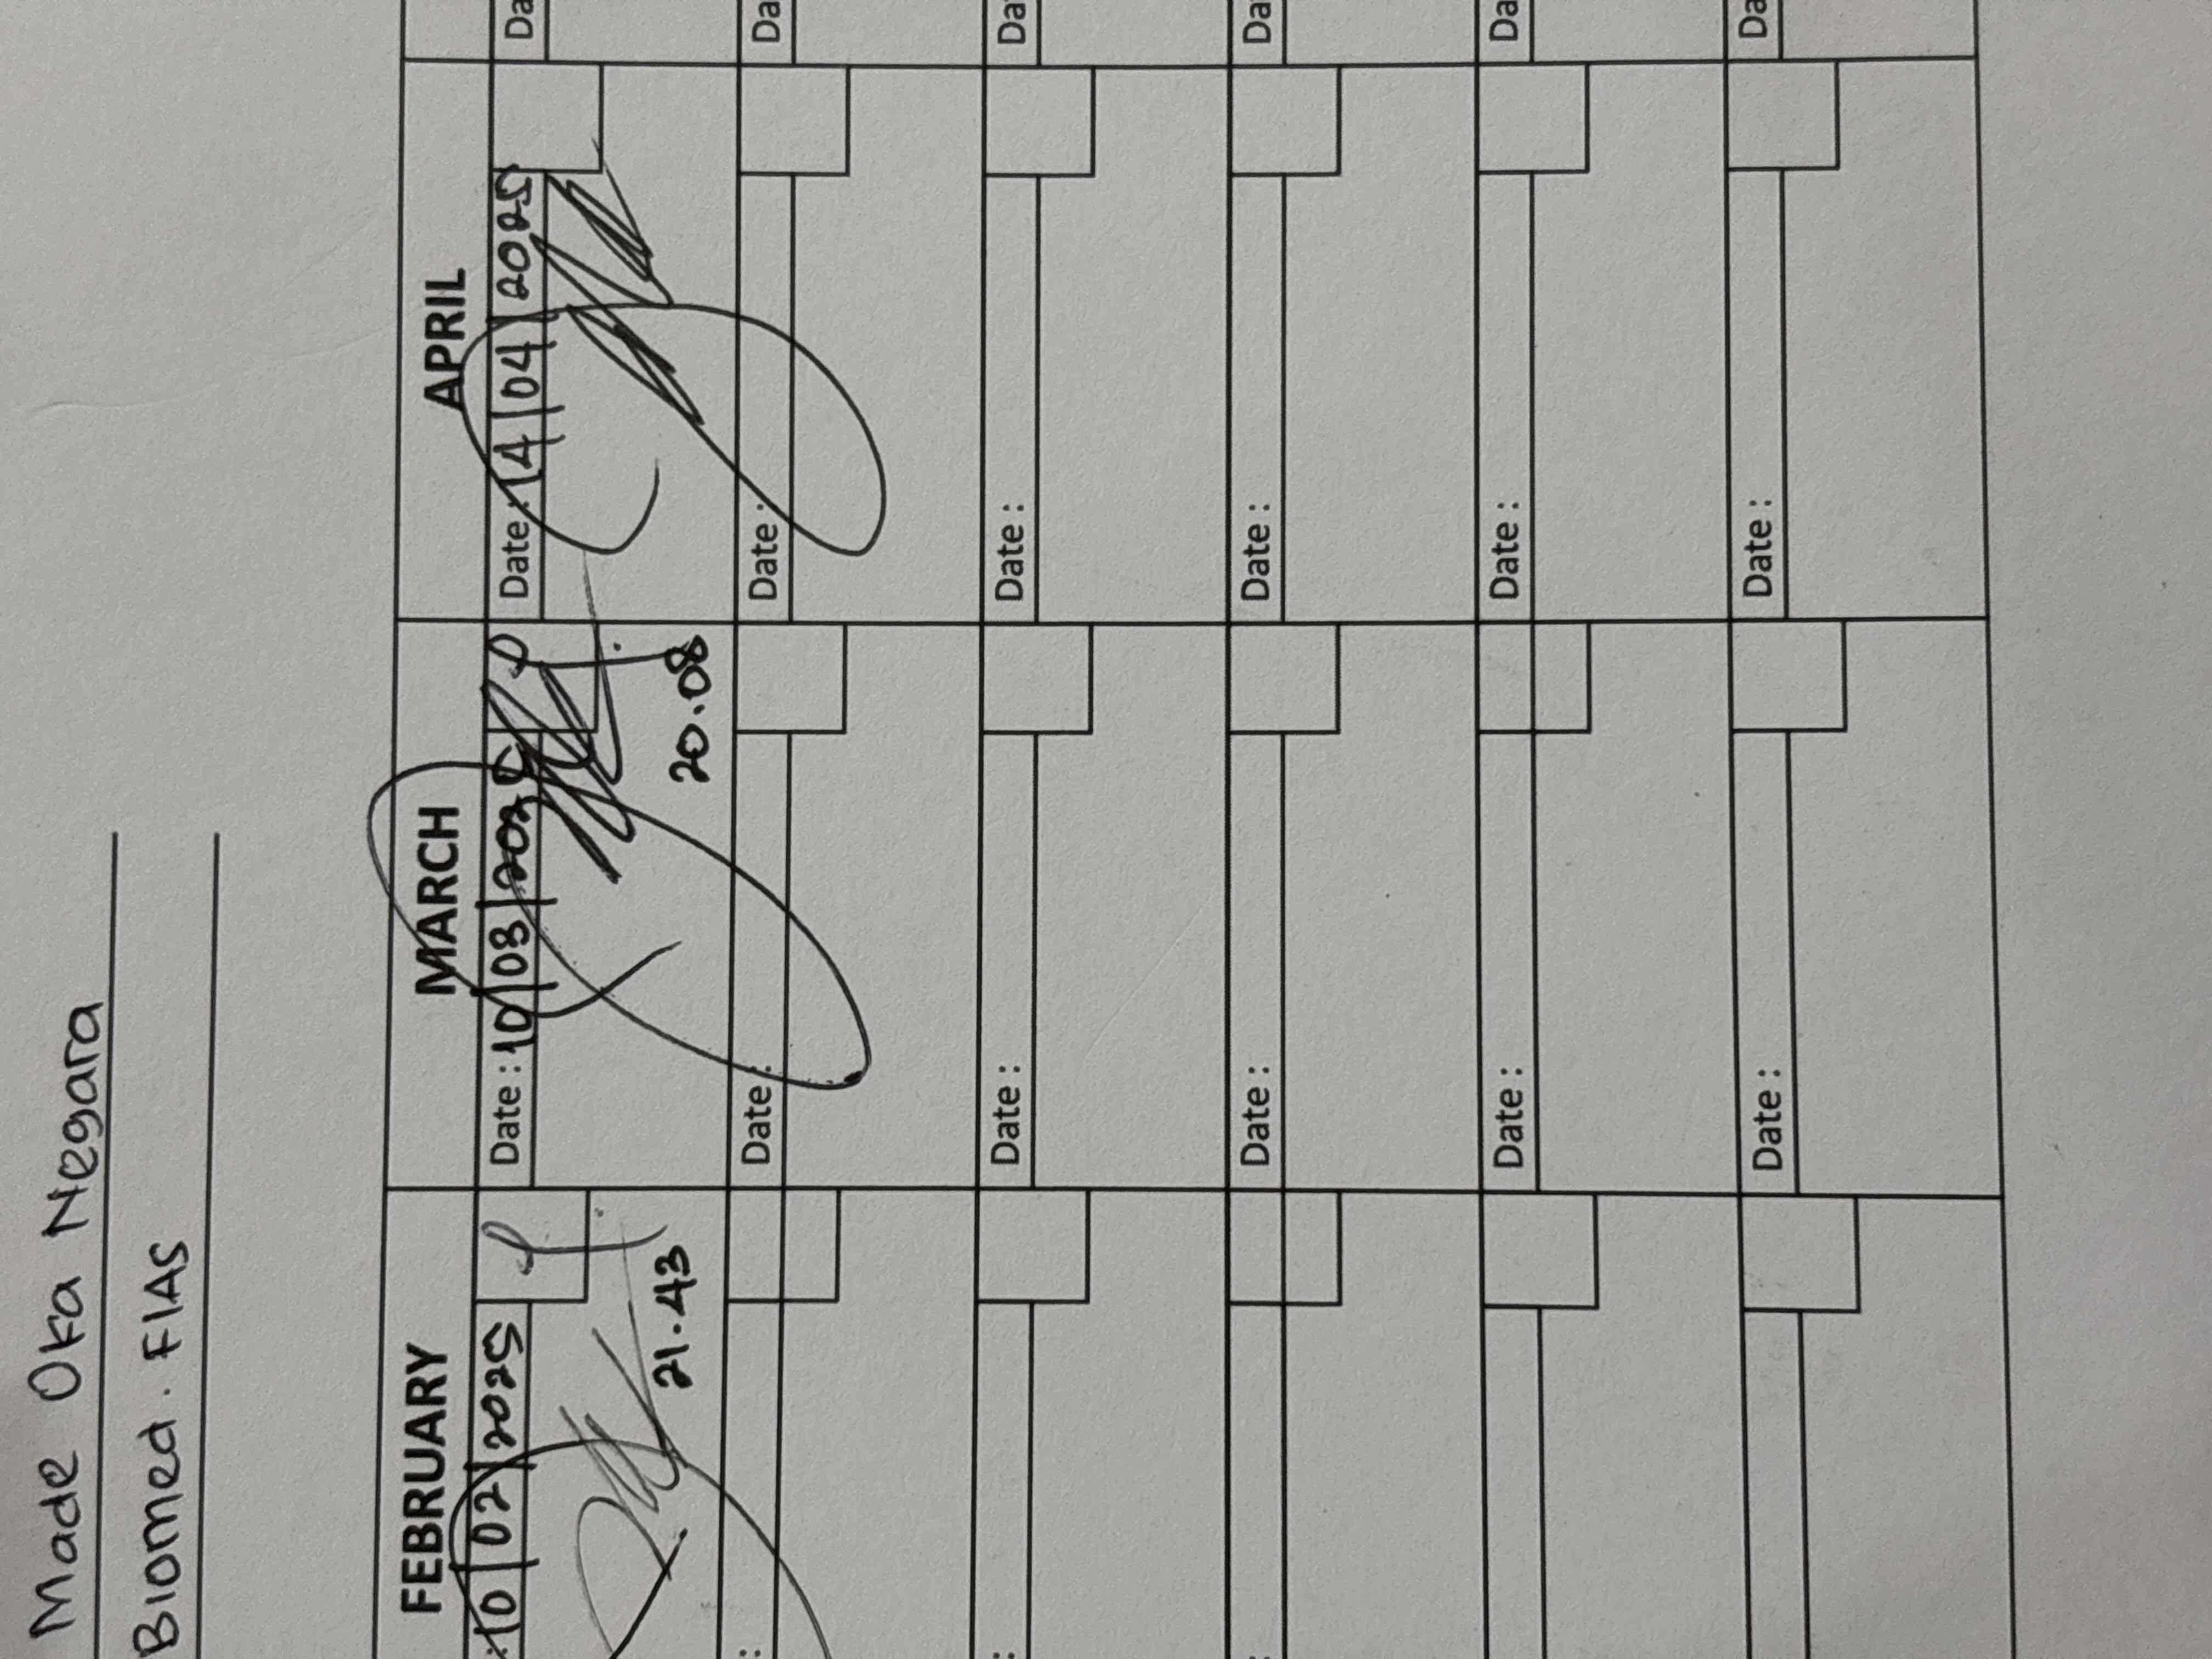 Made Oka Negara
Biomed. FIAS
FEBRUARY MARCH APRIL
10/02/2025 Date : 10/03/2025 Date : 14/04/2025 Da
21.43 20.08
: Date : Date : Da
: Date : Date : Da
: Date : Date : Da
Date : Date : Da
Date : Date : Da